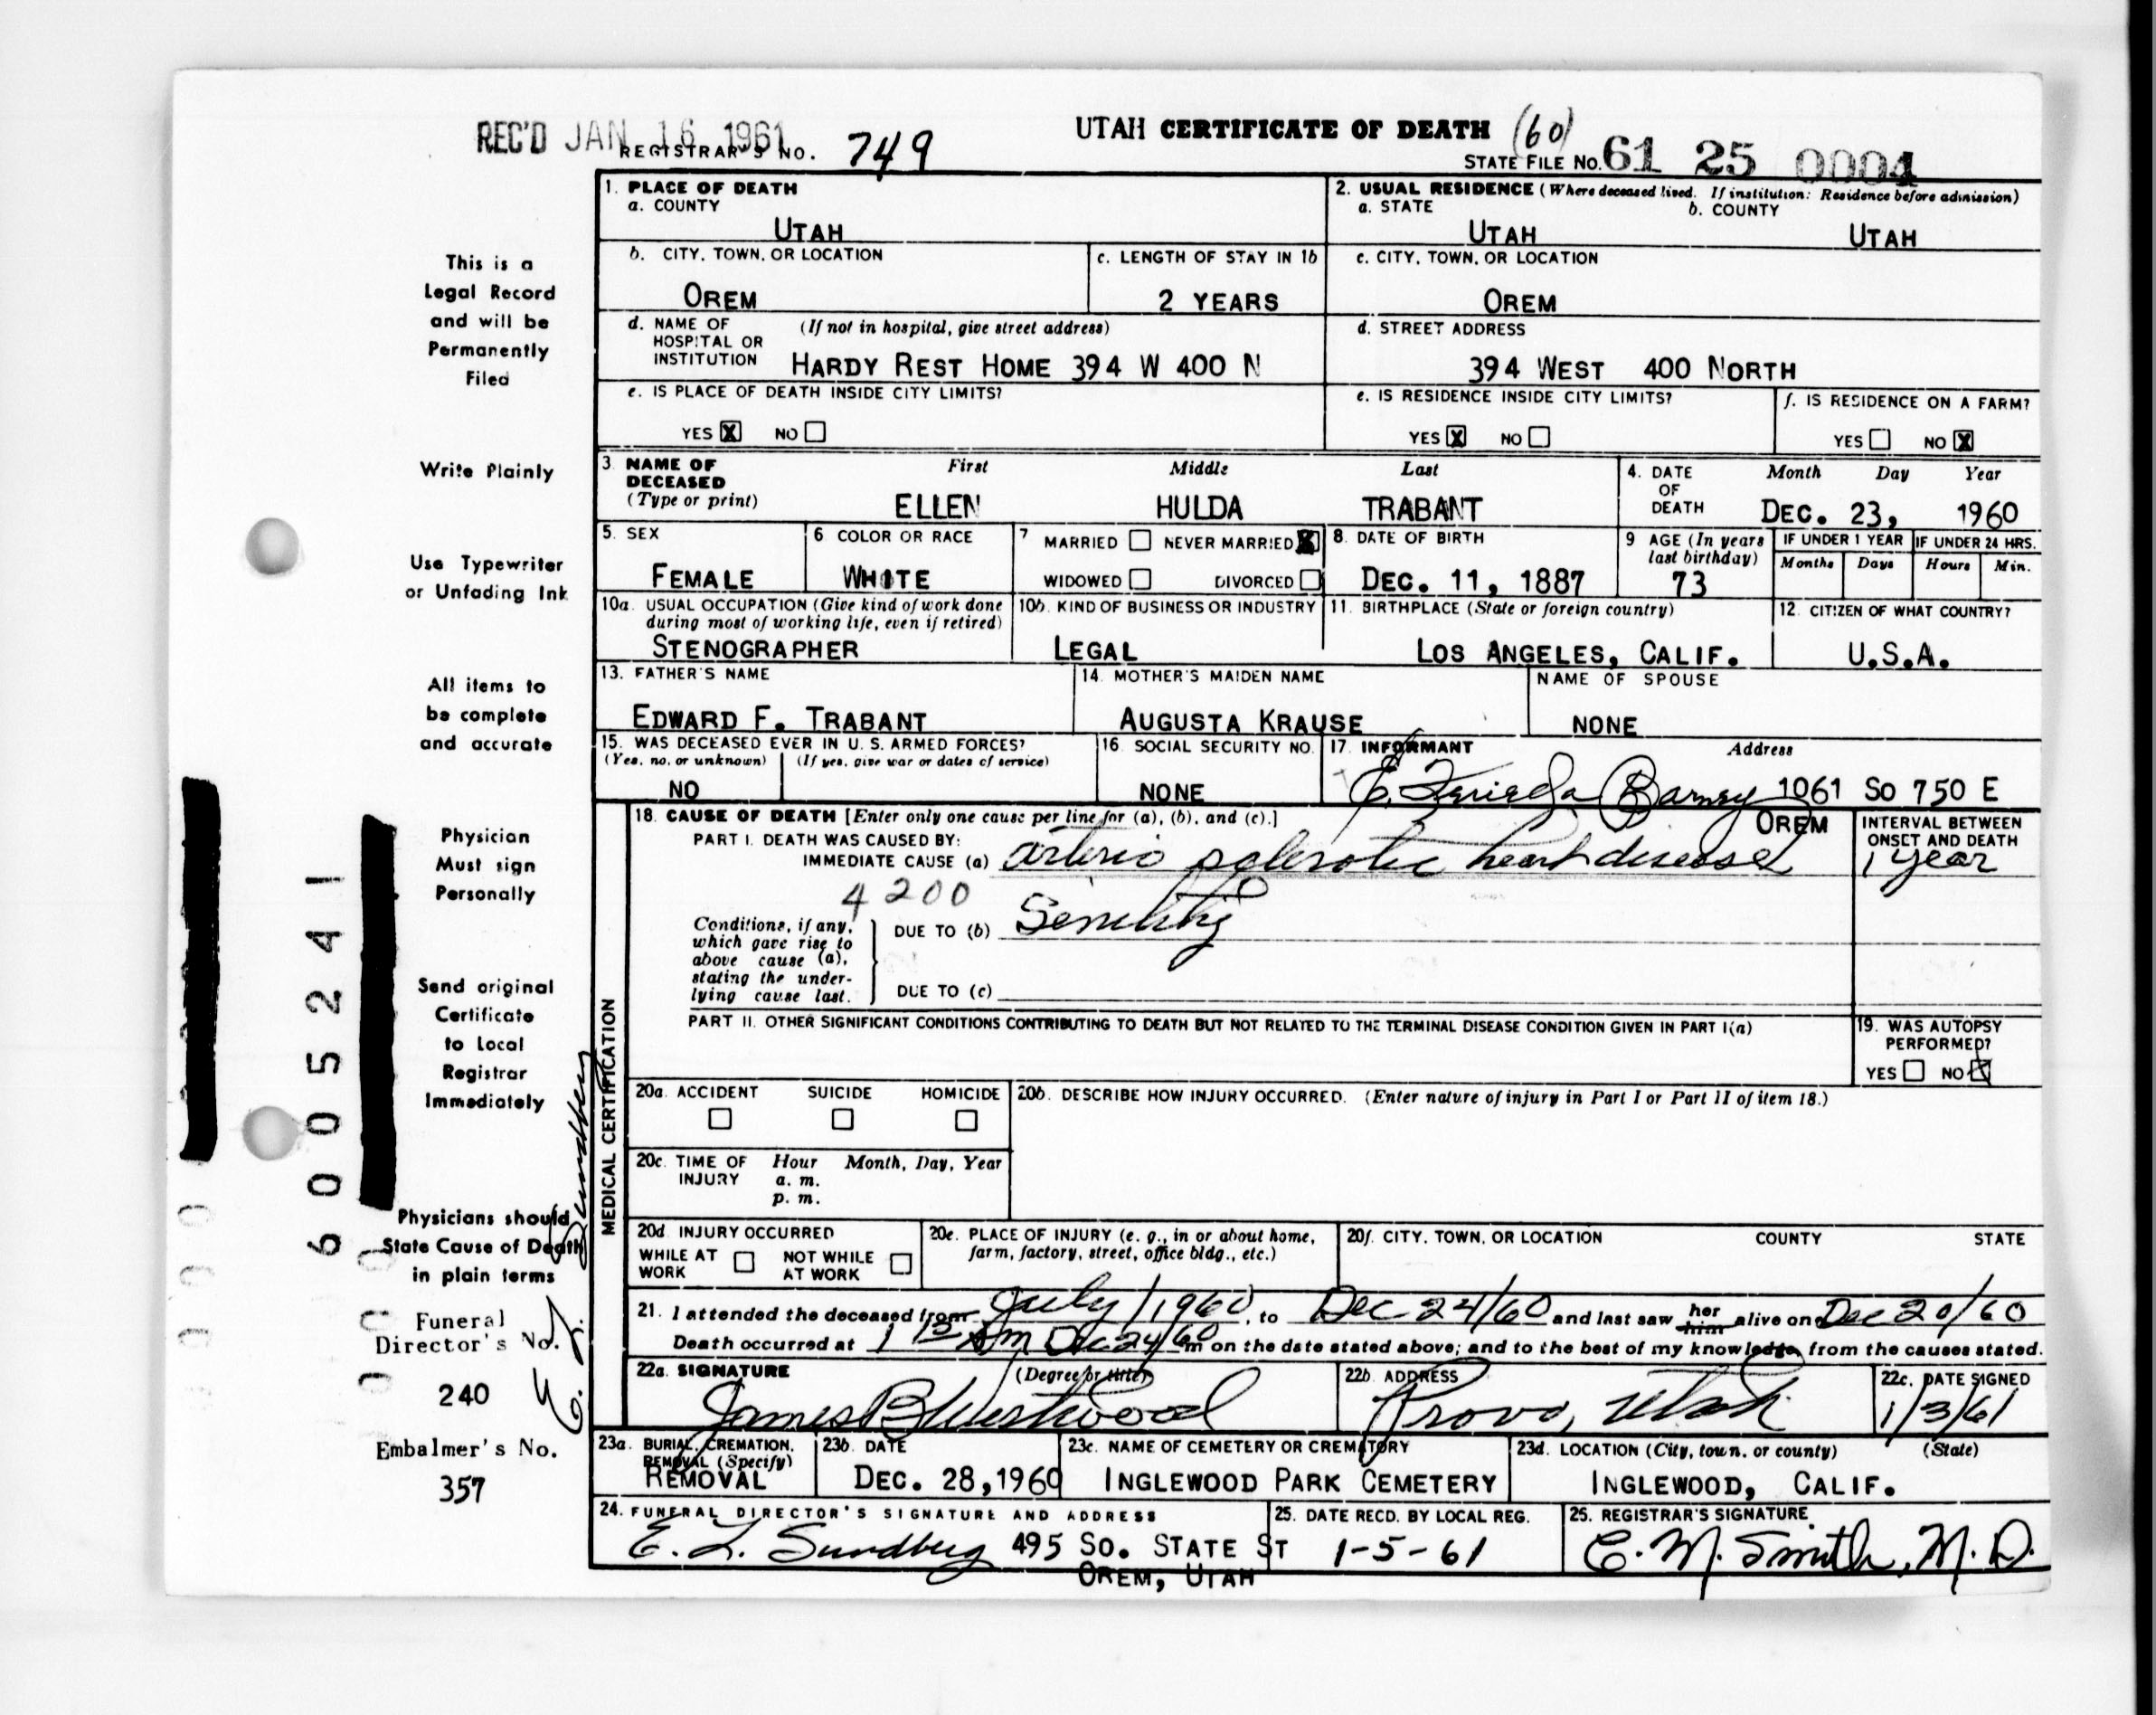 REC'D JAN 16 1961
REGISTRAR'S NO. 749
UTAH CERTIFICATE OF DEATH (60)
STATE FILE NO. 61 25 0004
This is a
Legal Record
and will be
Permanently
Filed
Write Plainly
Use Typewriter
or Unfading Ink
All items to
be complete
and accurate
Physician
Must sign
Personally
Send original
Certificate
to Local
Registrar
Immediately
Physicians should
State Cause of Death
in plain terms
Funeral
Director's No.
240
Embalmer's No.
357
E. L. Sundberg
6005241
1. PLACE OF DEATH
a. COUNTY
UTAH
2. USUAL RESIDENCE (Where deceased lived. If institution: Residence before admission)
a. STATE b. COUNTY
UTAH UTAH
b. CITY, TOWN, OR LOCATION
OREM
c. LENGTH OF STAY IN 1b
2 YEARS
c. CITY, TOWN, OR LOCATION
OREM
d. NAME OF (If not in hospital, give street address)
HOSPITAL OR
INSTITUTION HARDY REST HOME 394 W 400 N
d. STREET ADDRESS
394 WEST 400 NORTH
e. IS PLACE OF DEATH INSIDE CITY LIMITS?
YES X NO
e. IS RESIDENCE INSIDE CITY LIMITS?
YES X NO
f. IS RESIDENCE ON A FARM?
YES NO X
3. NAME OF First Middle Last
DECEASED
(Type or print) ELLEN HULDA TRABANT
4. DATE Month Day Year
OF
DEATH DEC. 23, 1960
5. SEX
FEMALE
6 COLOR OR RACE
WHITE
7 MARRIED NEVER MARRIED X
WIDOWED DIVORCED
8. DATE OF BIRTH
DEC. 11, 1887
9 AGE (In years
last birthday)
73
IF UNDER 1 YEAR IF UNDER 24 HRS.
Months Days Hours Min.
10a. USUAL OCCUPATION (Give kind of work done
during most of working life, even if retired)
STENOGRAPHER
10b. KIND OF BUSINESS OR INDUSTRY
LEGAL
11. BIRTHPLACE (State or foreign country)
LOS ANGELES, CALIF.
12. CITIZEN OF WHAT COUNTRY?
U.S.A.
13. FATHER'S NAME
EDWARD F. TRABANT
14. MOTHER'S MAIDEN NAME
AUGUSTA KRAUSE
NAME OF SPOUSE
NONE
15. WAS DECEASED EVER IN U. S. ARMED FORCES?
(Yes, no, or unknown) (If yes, give war or dates of service)
NO
16. SOCIAL SECURITY NO.
NONE
17. INFORMANT Address
E. Frieda Barney 1061 SO 750 E
OREM
18. CAUSE OF DEATH [Enter only one cause per line for (a), (b), and (c).]
PART I. DEATH WAS CAUSED BY:
IMMEDIATE CAUSE (a) arterio sclerotic heart disease
INTERVAL BETWEEN
ONSET AND DEATH
1 year
4200
Conditions, if any,
which gave rise to
above cause (a),
stating the under-
lying cause last.
DUE TO (b) Senility
DUE TO (c)
PART II. OTHER SIGNIFICANT CONDITIONS CONTRIBUTING TO DEATH BUT NOT RELATED TO THE TERMINAL DISEASE CONDITION GIVEN IN PART I(a)
19. WAS AUTOPSY
PERFORMED?
YES NO X
MEDICAL CERTIFICATION
20a. ACCIDENT SUICIDE HOMICIDE
20b. DESCRIBE HOW INJURY OCCURRED. (Enter nature of injury in Part I or Part II of item 18.)
20c. TIME OF Hour Month, Day, Year
INJURY a. m.
p. m.
20d. INJURY OCCURRED
WHILE AT NOT WHILE
WORK AT WORK
20e. PLACE OF INJURY (e. g., in or about home,
farm, factory, street, office bldg., etc.)
20f. CITY, TOWN, OR LOCATION COUNTY STATE
21. I attended the deceased from July/1960, to Dec 24/60 and last saw her him alive on Dec 20/60
Death occurred at 1 15 Am Dec 24/60 m on the date stated above; and to the best of my knowledge, from the causes stated.
22a. SIGNATURE (Degree or title)
James B Westwood
22b. ADDRESS
Provo, Utah
22c. DATE SIGNED
1/3/61
23a. BURIAL, CREMATION,
REMOVAL (Specify)
REMOVAL
23b. DATE
DEC. 28, 1960
23c. NAME OF CEMETERY OR CREMATORY
INGLEWOOD PARK CEMETERY
23d. LOCATION (City, town, or county) (State)
INGLEWOOD, CALIF.
24. FUNERAL DIRECTOR'S SIGNATURE AND ADDRESS
E. L. Sundberg 495 SO. STATE ST
OREM, UTAH
25. DATE RECD. BY LOCAL REG.
1-5-61
25. REGISTRAR'S SIGNATURE
C. M. Smith, M. D.